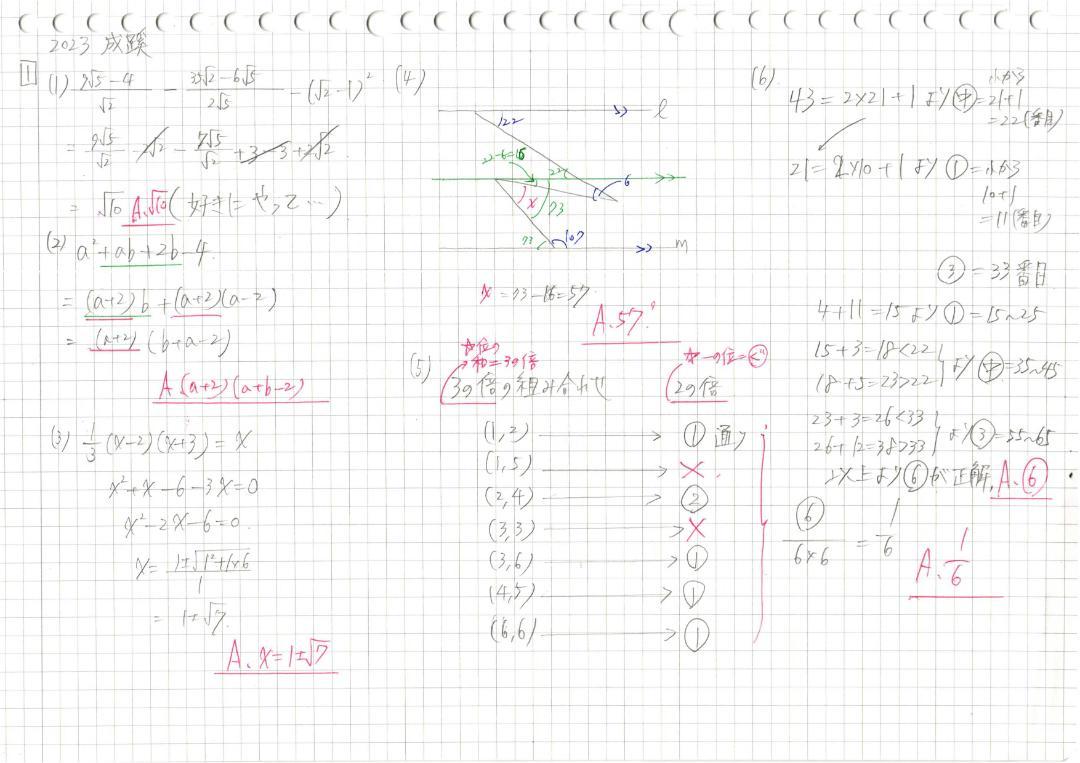 2023 成蹊
1
(1) 9√5-4/√2 - 35√2-6√5/2√5 - (√2-1)²
= 9√5/√2 - 4/√2 - 7√5/√2 + 3 - 3 + 2√2
= √10 A.√10 (好きにやって…)
(2) a²+ab+2b-4
= (a+2)b+(a+2)(a-2)
= (a+2)(b+a-2)
A.(a+2)(a+b-2)
(3) 1/3(x-2)(x+3)=x
x²+x-6-3x=0
x²-2x-6=0
x=1±√1²+1×6/1
= 1±√7
A. x=1±√7
(4)
122
ℓ
22-6=16
22
6
x
73
73
107
m
x=73-16=57
A.57°
(5)
和=3の倍
3の倍の組み合わせ
☆一の位=ぐ
2の倍
(1,2) → ① 通り
(1,5) → ×
(2,4) → ②
(3,3) → ×
(3,6) → ①
(4,5) → ①
(6,6) → ①
⑥/6×6 = 1/6
A. 1/6
(6)
43=2×21+1より㊥=小から21+1=22(番目)
21=2×10+1より①=小から10+1=11(番目)
③=33番目
4+11=15より①=15~25
15+3=18<22
18+5=23>22
より㊥=35~45
23+3=26<33
26+12=38>33
より③=55~65
以上より⑥が正解, A.⑥